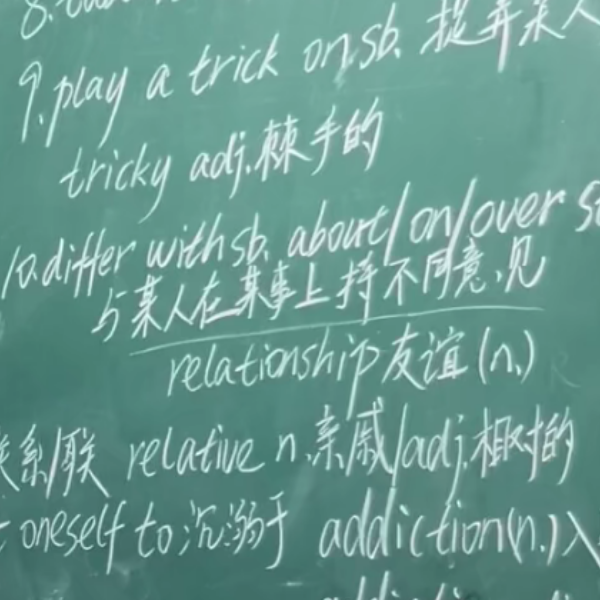 9. play a trick on sb. 捉弄某人
tricky adj. 棘手的
10. differ with sb. about/on/over
与某人在某事上持不同意见
relationship 友谊 (n.)
系/联 relative n. 亲戚/adj. 相对的
oneself to 沉溺于 addiction (n.)